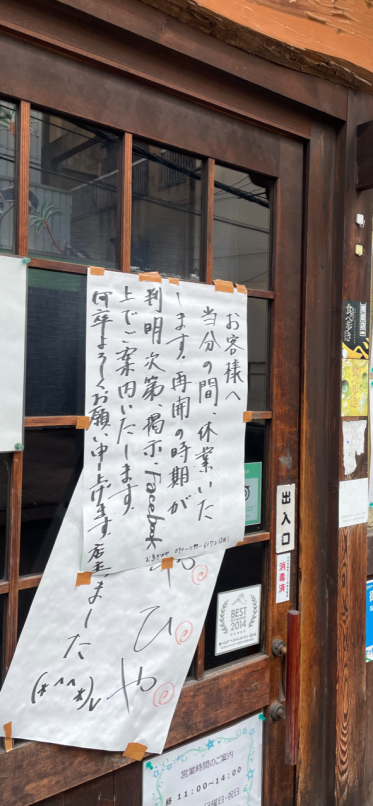 お客様へ
当分の間、休業いた
します。再開の時期が
判明次第、掲示・Facebook
上でご案内いたします。
何卒よろしくお願い申し上げます。店主
ました
(*^^*)v
ひや
出入口
消毒済
食べ歩き
BEST
2014
営業時間のご案内
昼 11:00～14:00
曜日・祝日